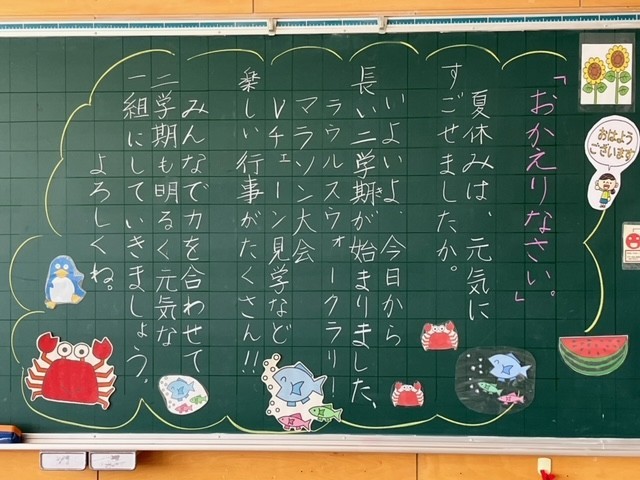 おはよう
ございます
「おかえりなさい。」
夏休みは、元気に
すごせましたか。
いよいよ、今日から
長い二学期が始まりました、
ラウルスウォークラリ
マラソン大会
Vチェーン見学など
楽しい行事がたくさん!!
みんなで力を合わせて
二学期も明るく元気な
一組にしていきましょう。
よろしくね。